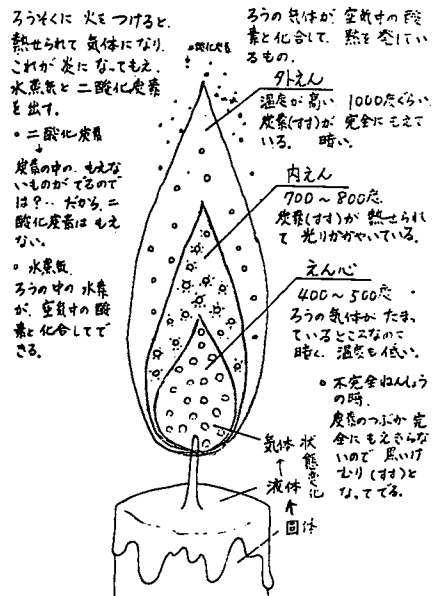 ろうそくに 火を つけると、
熱せられて 気体に なり
これが 炎に なって もえ、
水蒸気と 二酸化炭素
を 出す。
• 二酸化炭素
炭素の中の、もえな
いものが でるので
は?‥ だから、二
酸化炭素は もえ
ない。
○ 水蒸気
ろうの中の 水素
が、空気中の 酸
素と 化合して で
きる。
二酸化炭素
ろうの 気体が 空気中の 酸
素と 化合して、熱を 発してい
るもの。
外えん
温度が 高い 1000度ぐらい
炭素(すす)が 完全に もえて
いる。 暗い。
内えん
700〜800度
炭素(すす)が 熱せられ
て 光りかがやいている。
えん心
400〜500度
ろうの気体が たまっ
ているところなので
暗く、温度も 低い。
○ 不完全ねんしょう
の時、
炭素のつぶが 完
全に もえきらな
いので 黒いけ
むり(すす)と
なって でる。
気体
↑
液体
↑
固体
状態変化